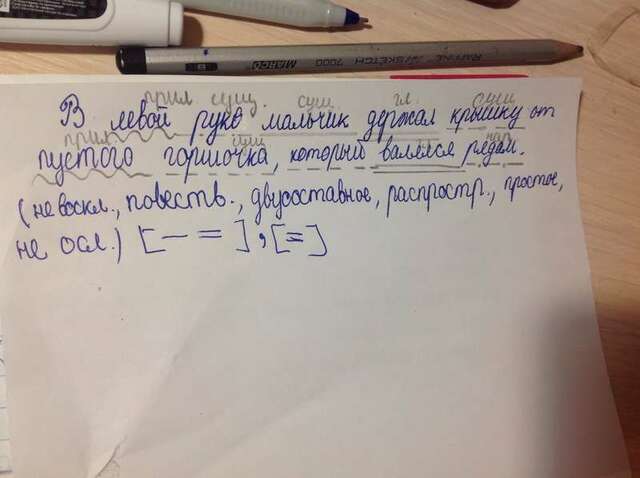 RAFFINÉ SKETCH 7000 MARCO
прил сущ. сущ. гл. сущ
В левой руке мальчик держал крышку от
прил. сущ нар
пустого горшочка, который валялся рядом.
(невоскл., повеств., двусоставное, распростр., простое,
не осл.) [— =], [=]